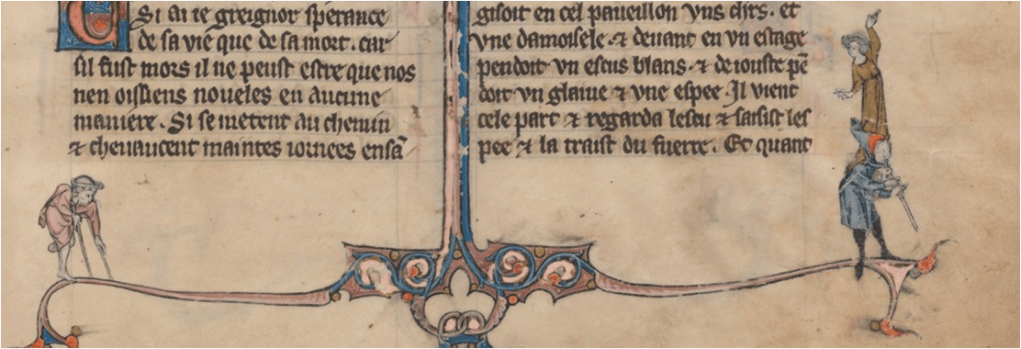 Si ai ie greignor sperance
de sa vie que de sa mort. car
sil fust mors il ne peust estre que nos
nen oissiens noueles en aucune
maniere. Si se metent au chemin
⁊ cheuaucent maintes iornees ensã
gisoit en cel paueillon vns chrs. et
vne damoisele ⁊ deuant en vn estage
pendoit vn escus blans ⁊ de iouste pẽ
doit vn glaiue ⁊ vne espee. Il vient
cele part ⁊ regarda lescu ⁊ saisist les
pee ⁊ la traist du fuerre. Et quant